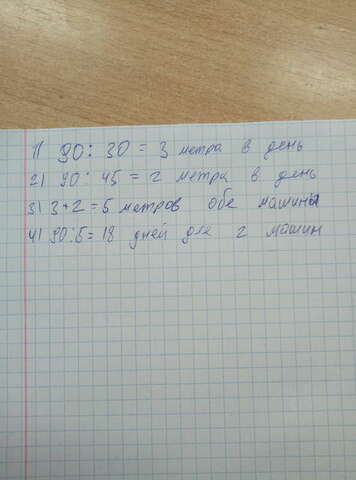 1) 90 : 30 = 3 метра в день
2) 90 : 45 = 2 метра в день
3) 3+2 = 5 метров обе машины
4) 90:5 = 18 дней для 2 машин